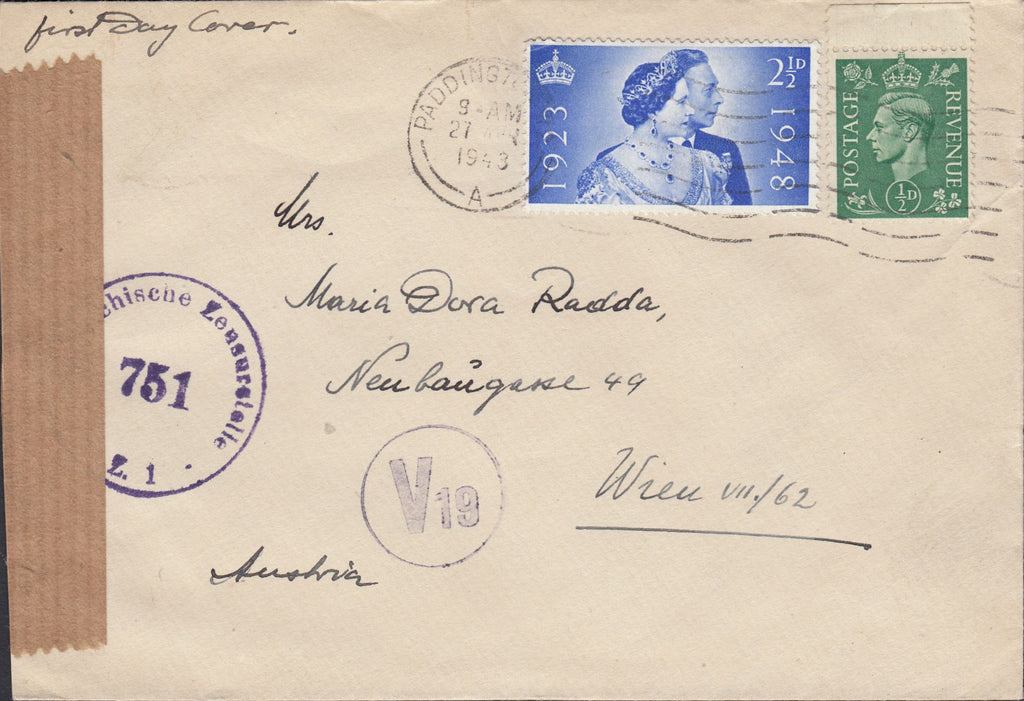 First Day Cover.
PADDINGTON
9-AM
27
1948
A
1923
2½D
1948
POSTAGE
REVENUE
½D
Mrs.
Maria Dora Radda,
Neubaugasse 49
Wien VII./62
Austria
chische Zensurstelle
751
Z. 1
V19